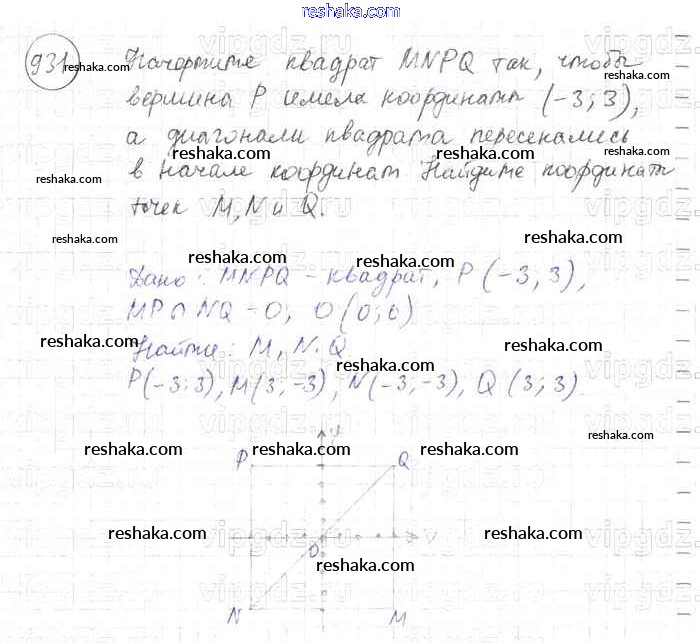 reshaka.com
931
Начертите квадрат MNPQ так, чтобы
вершина P имела координаты (-3; 3),
а диагонали квадрата пересекались
в начале координат. Найдите координаты
точек M, N и Q.
Дано: MNPQ - квадрат, P(-3, 3),
MP∩NQ - O, O(0; 0)
Найти: M, N. Q
P(-3; 3), M(3; -3), N(-3; -3), Q(3; 3)
y
P Q
O
N M
reshaka.com
reshaka.com
reshaka.com
reshaka.com
reshaka.com
reshaka.com
reshaka.com
reshaka.com
reshaka.com
reshaka.com
reshaka.com
reshaka.com
reshaka.com
reshaka.com
reshaka.com
reshaka.com
reshaka.com
reshaka.com
reshaka.com